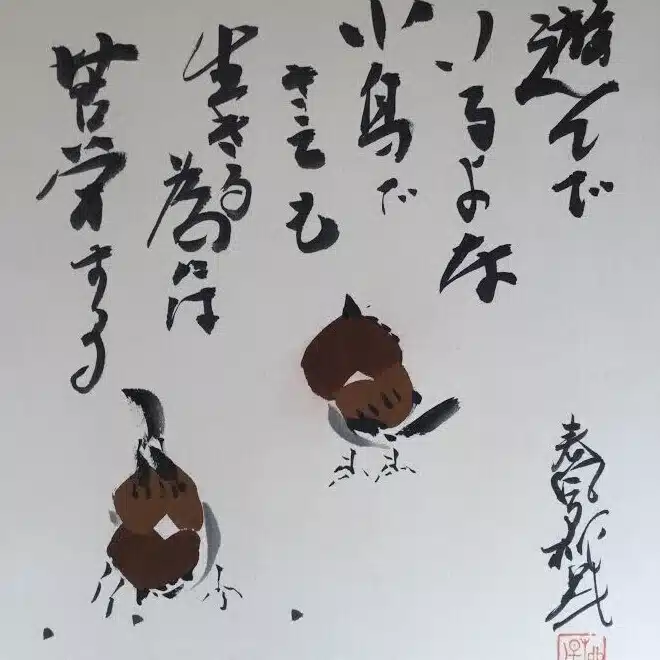 遊んで
いるよな
小鳥で
さえも
生きる為には
苦労する